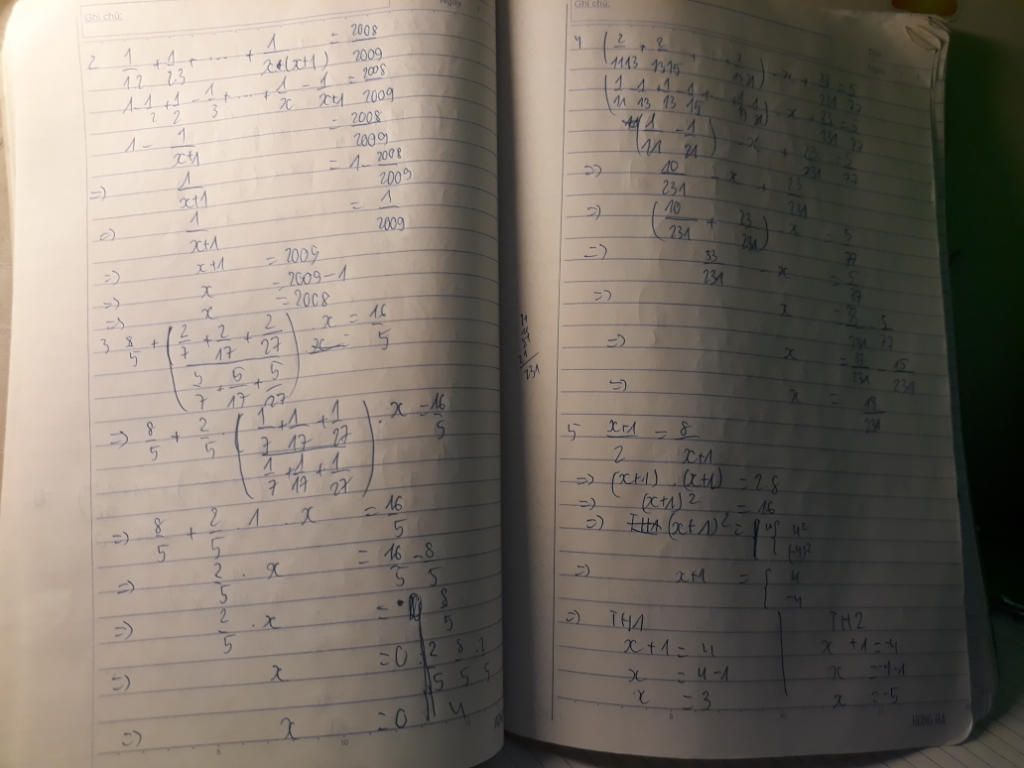 Ghi chú:
2 1/1.2 + 1/2.3 + ... + 1/x.(x+1) = 2008/2009
1 - 1/2 + 1/2 - 1/3 + ... + 1/x - 1/x+1 = 2008/2009
1 - 1/x+1 = 2008/2009
=> 1/x+1 = 1 - 2008/2009
=> 1/x+1 = 1/2009
=> x+1 = 2009
=> x = 2009-1
=> x = 2008
3 8/5 + (2/7 + 2/17 + 2/27 / 5/7 + 5/17 + 5/27) . x = 16/5
=> 8/5 + 2/5 (1/7 + 1/17 + 1/27 / 1/7 + 1/17 + 1/27) . x = 16/5
=> 8/5 + 2/5 . 1 . x = 16/5
=> 2/5 . x = 16/5 - 8/5
=> 2/5 . x = 8/5
=> x = 0 2/5 8/5 : 2/5
=> x = 0 4
Ghi chú:
4 (2/11.13 + 2/13.15 + ... + 2/19.21) - x + 23/231 = 5/77
(1/11 - 1/13 + 1/13 - 1/15 + ... + 1/19 - 1/21) - x + 23/231 = 5/77
(1/11 - 1/21) - x + 23/231 = 5/77
=> 10/231 - x + 23/231
=> (10/231 + 23/231) - x = 5/77
=> 33/231 - x = 5/77
=> x = 33/231 - 5/77
=> x = 33/231 - 15/231
=> x = 18/231
231
5 x+1/2 = 8/x+1
=> (x+1) . (x+1) = 2.8
=> (x+1)² = 16
=> (x+1)² = { 4² (-4)²
=> x+1 = { 4 -4
=> TH1 TH2
x+1 = 4 x+1 = -4
x = 4-1 x = -4-1
x = 3 x = -5
HONG HA